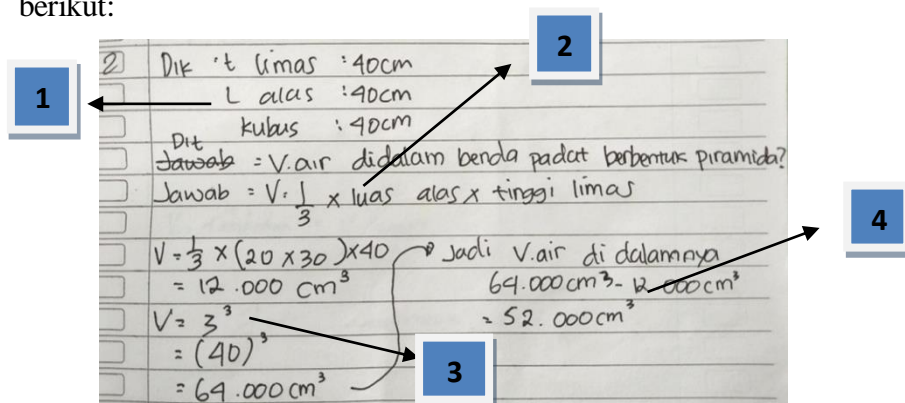 berikut:
2
2 Dik : t limas : 40cm
1
L alas : 40cm
kubus : 40cm
Dit
Jawab = V.air didalam benda padat berbentuk piramida?
Jawab = V. 1/3 x luas alas x tinggi limas
4
V = 1/3 x (20 x 30) x 40
= 12.000 cm³
V = 3³
= (40)³
= 64.000 cm³
Jadi V.air di dalamnya
64.000 cm³ - 12.000 cm³
= 52.000 cm³
3